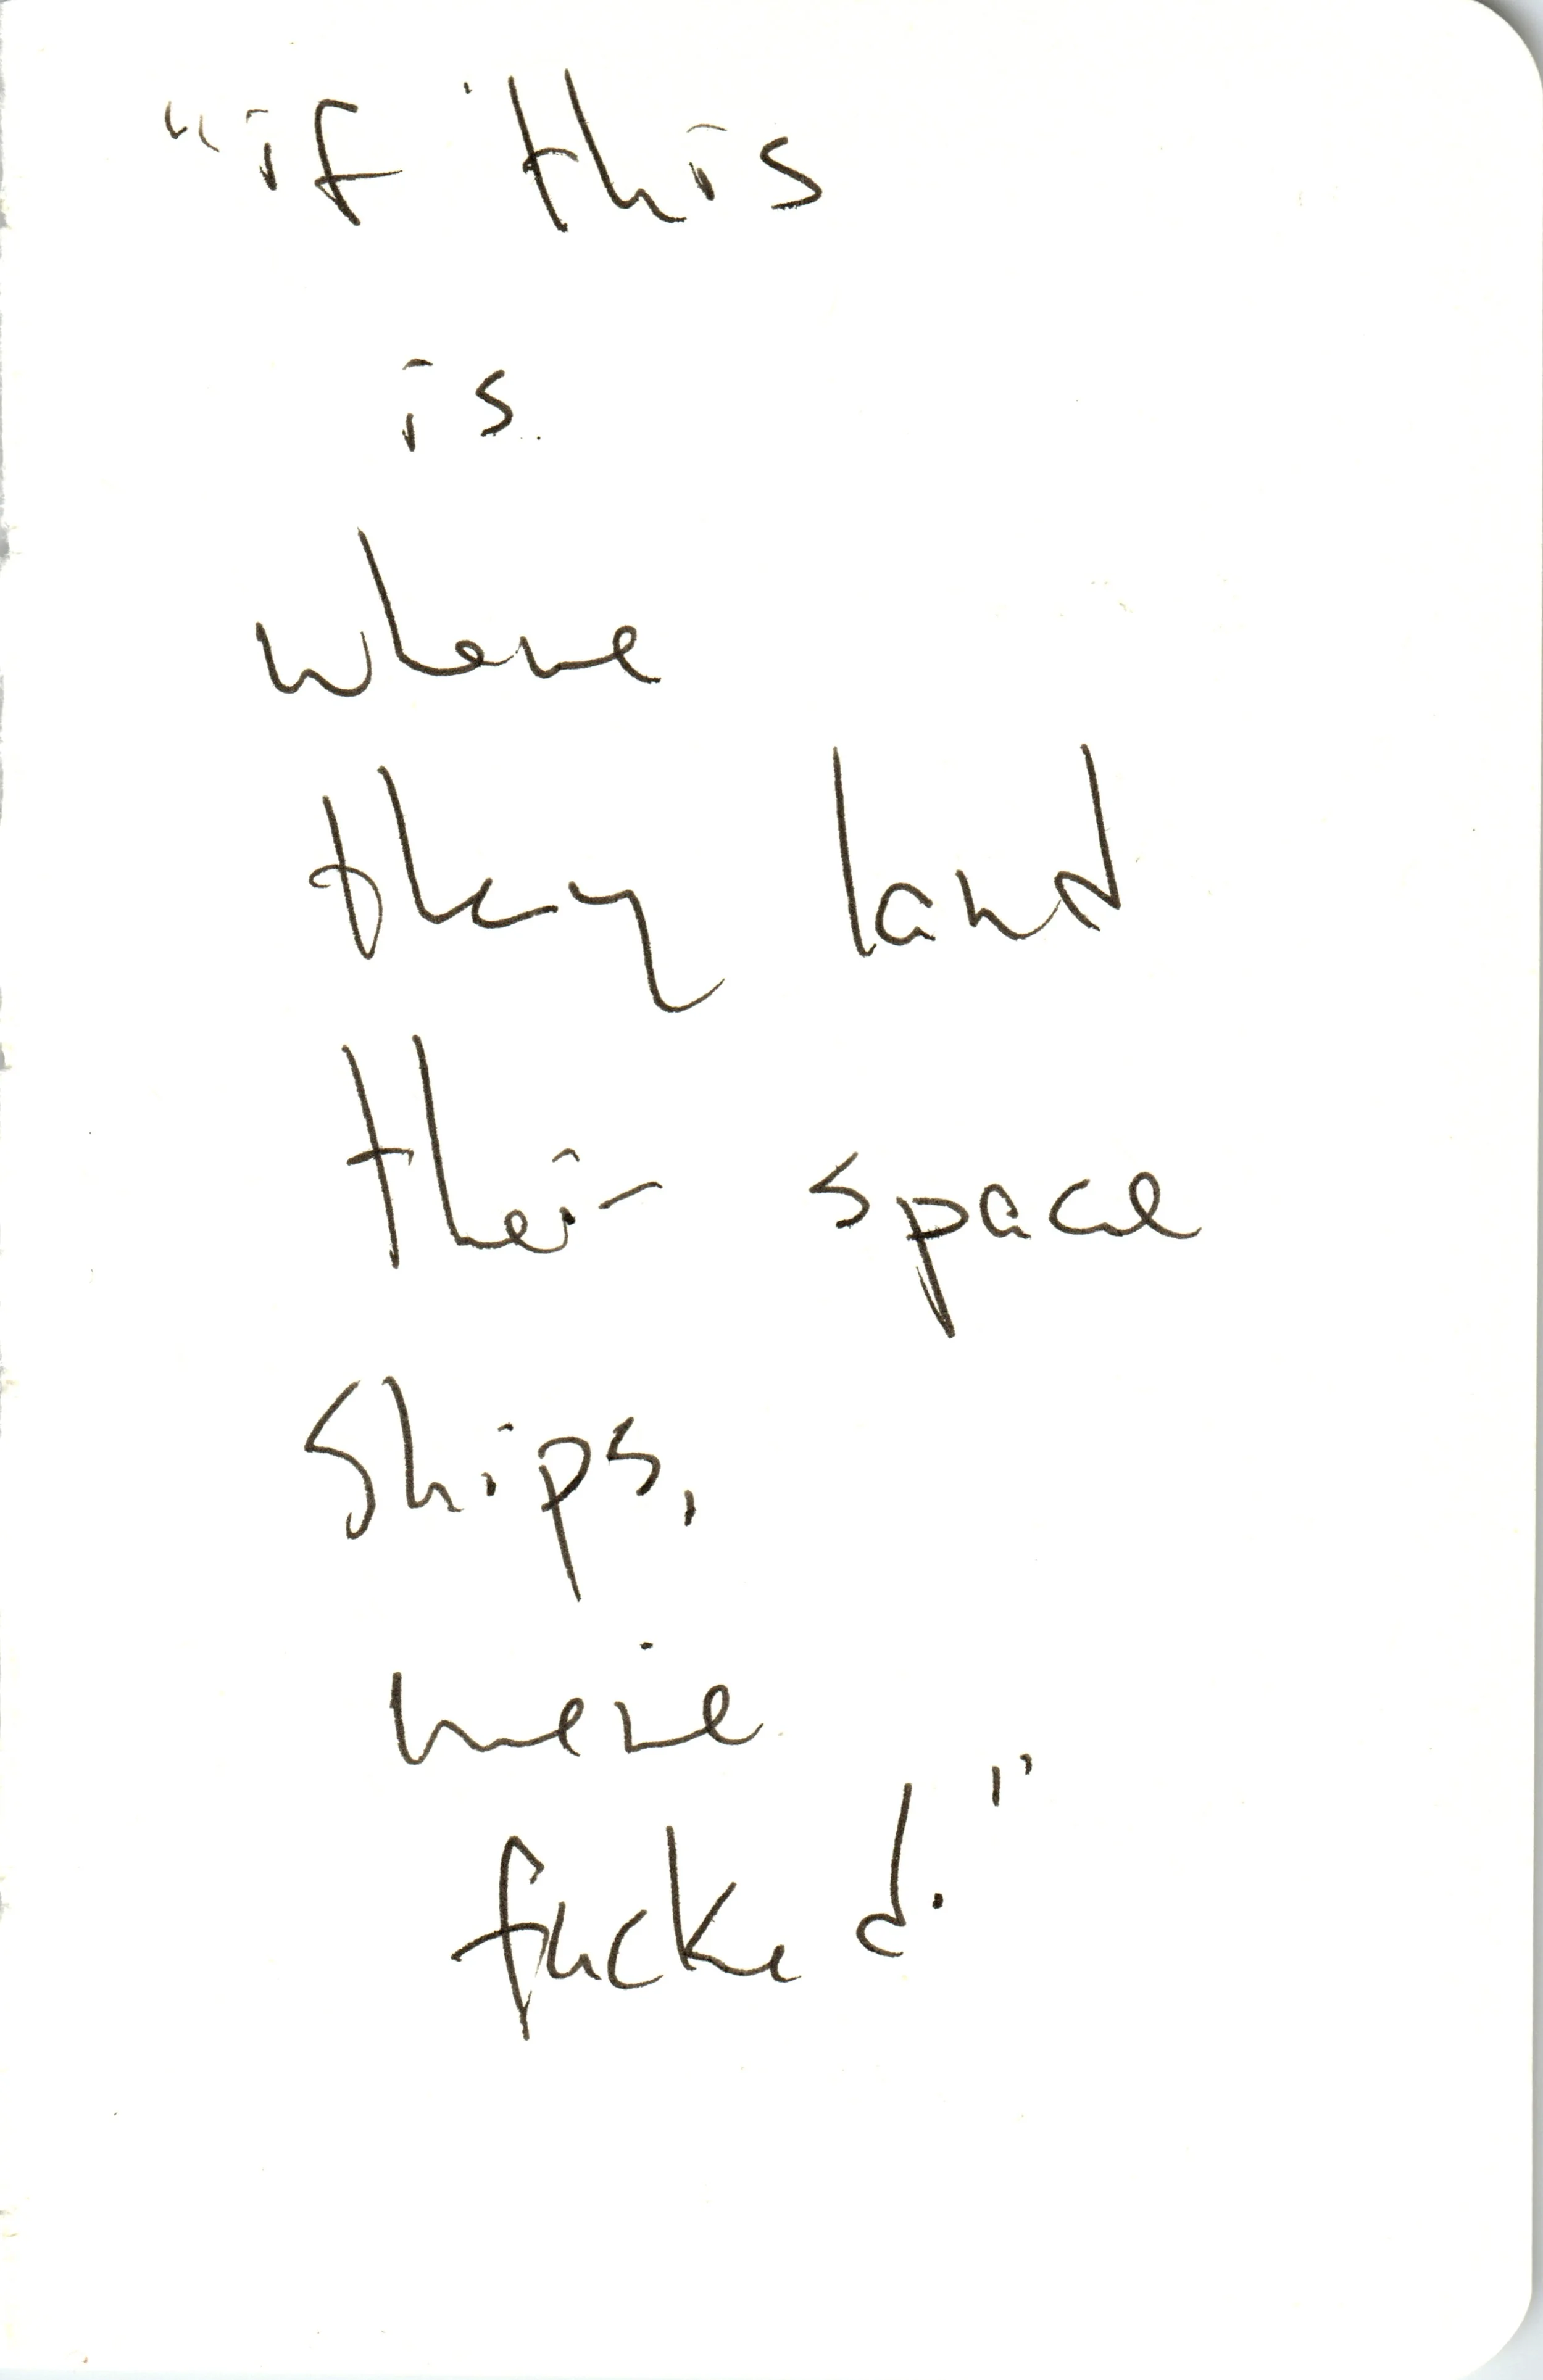 "if this
is
where
they land
their space
ships,
we're
fucked."